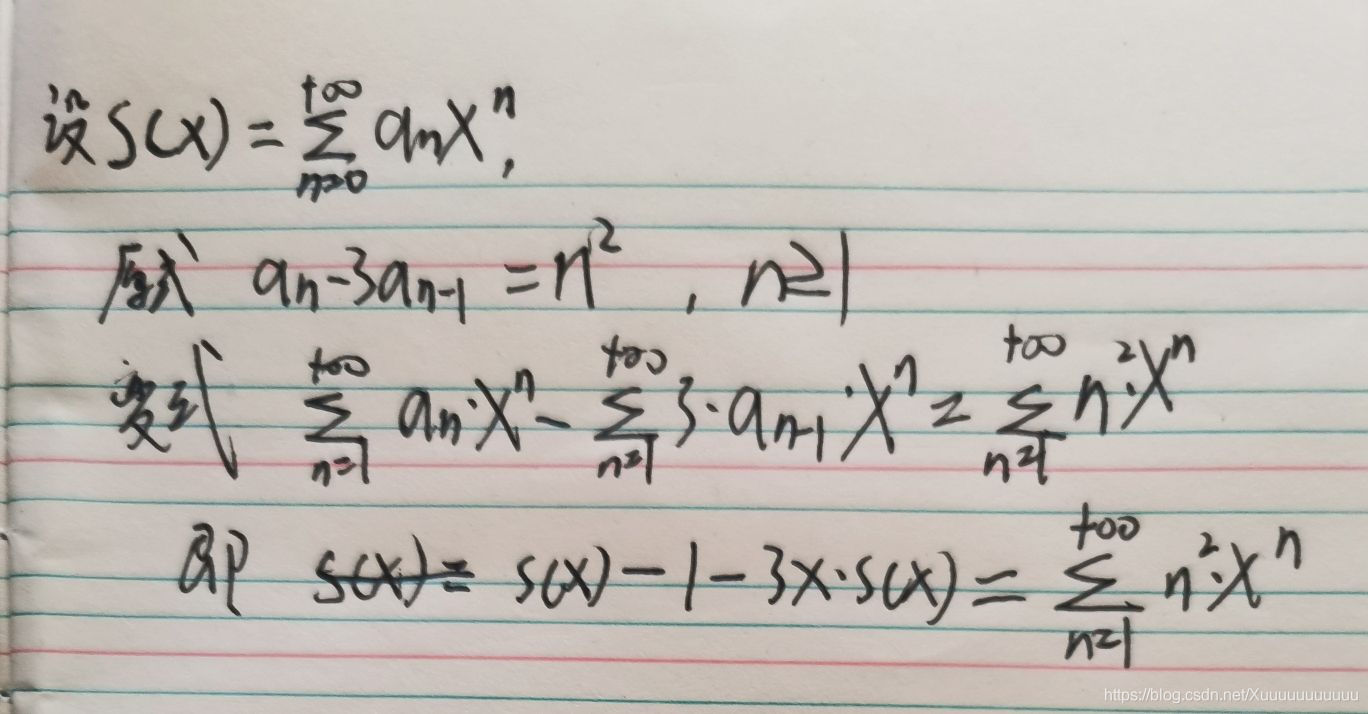 设 S(X) = \sum_{n=0}^{+∞} a_n X^n,
原式 a_n - 3a_{n-1} = n^2 , n≥1
变式 \sum_{n=1}^{+∞} a_n·X^n - \sum_{n=1}^{+∞} 3·a_{n-1}·X^n = \sum_{n=1}^{+∞} n^2·X^n
即 S(X) = S(X) - 1 - 3X·S(X) = \sum_{n=1}^{+∞} n^2·X^n
https://blog.csdn.net/Xuuuuuuuuuuu